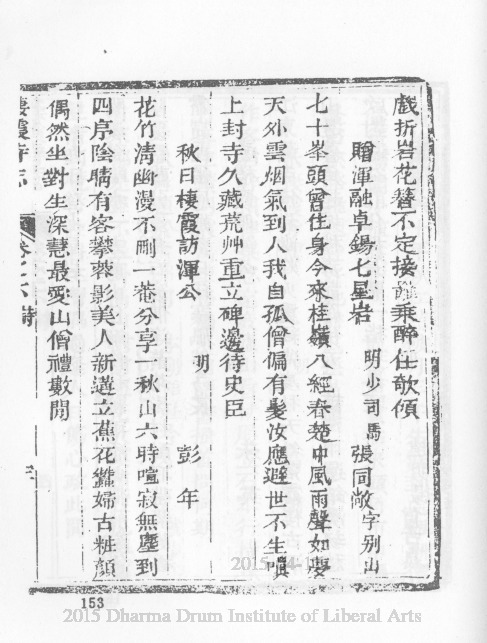 戲折岩花簪不定接䍦乘醉任欹傾
贈渾融卓錫七星岩
明少司馬張同敞字別山
七十峯頭曾住身今來桂嶺八經春楚中風雨聲如夢
天外雲烟氣到人我自孤僧偏有髮汝應避世不生嗔
上封寺久藏荒艸重立碑邊待史臣
秋日棲霞訪渾公
明 彭年
花竹清幽漫不刪一菴分享一秋山六時喧寂無塵到
四序陰晴有客攀蓉影美人新遘立蕉花蠻婦古粧顏
偶然坐對生深慧最愛山僧禮數閒
棲霞寺志
卷之六
153
2015 Dharma Drum Institute of Liberal Arts